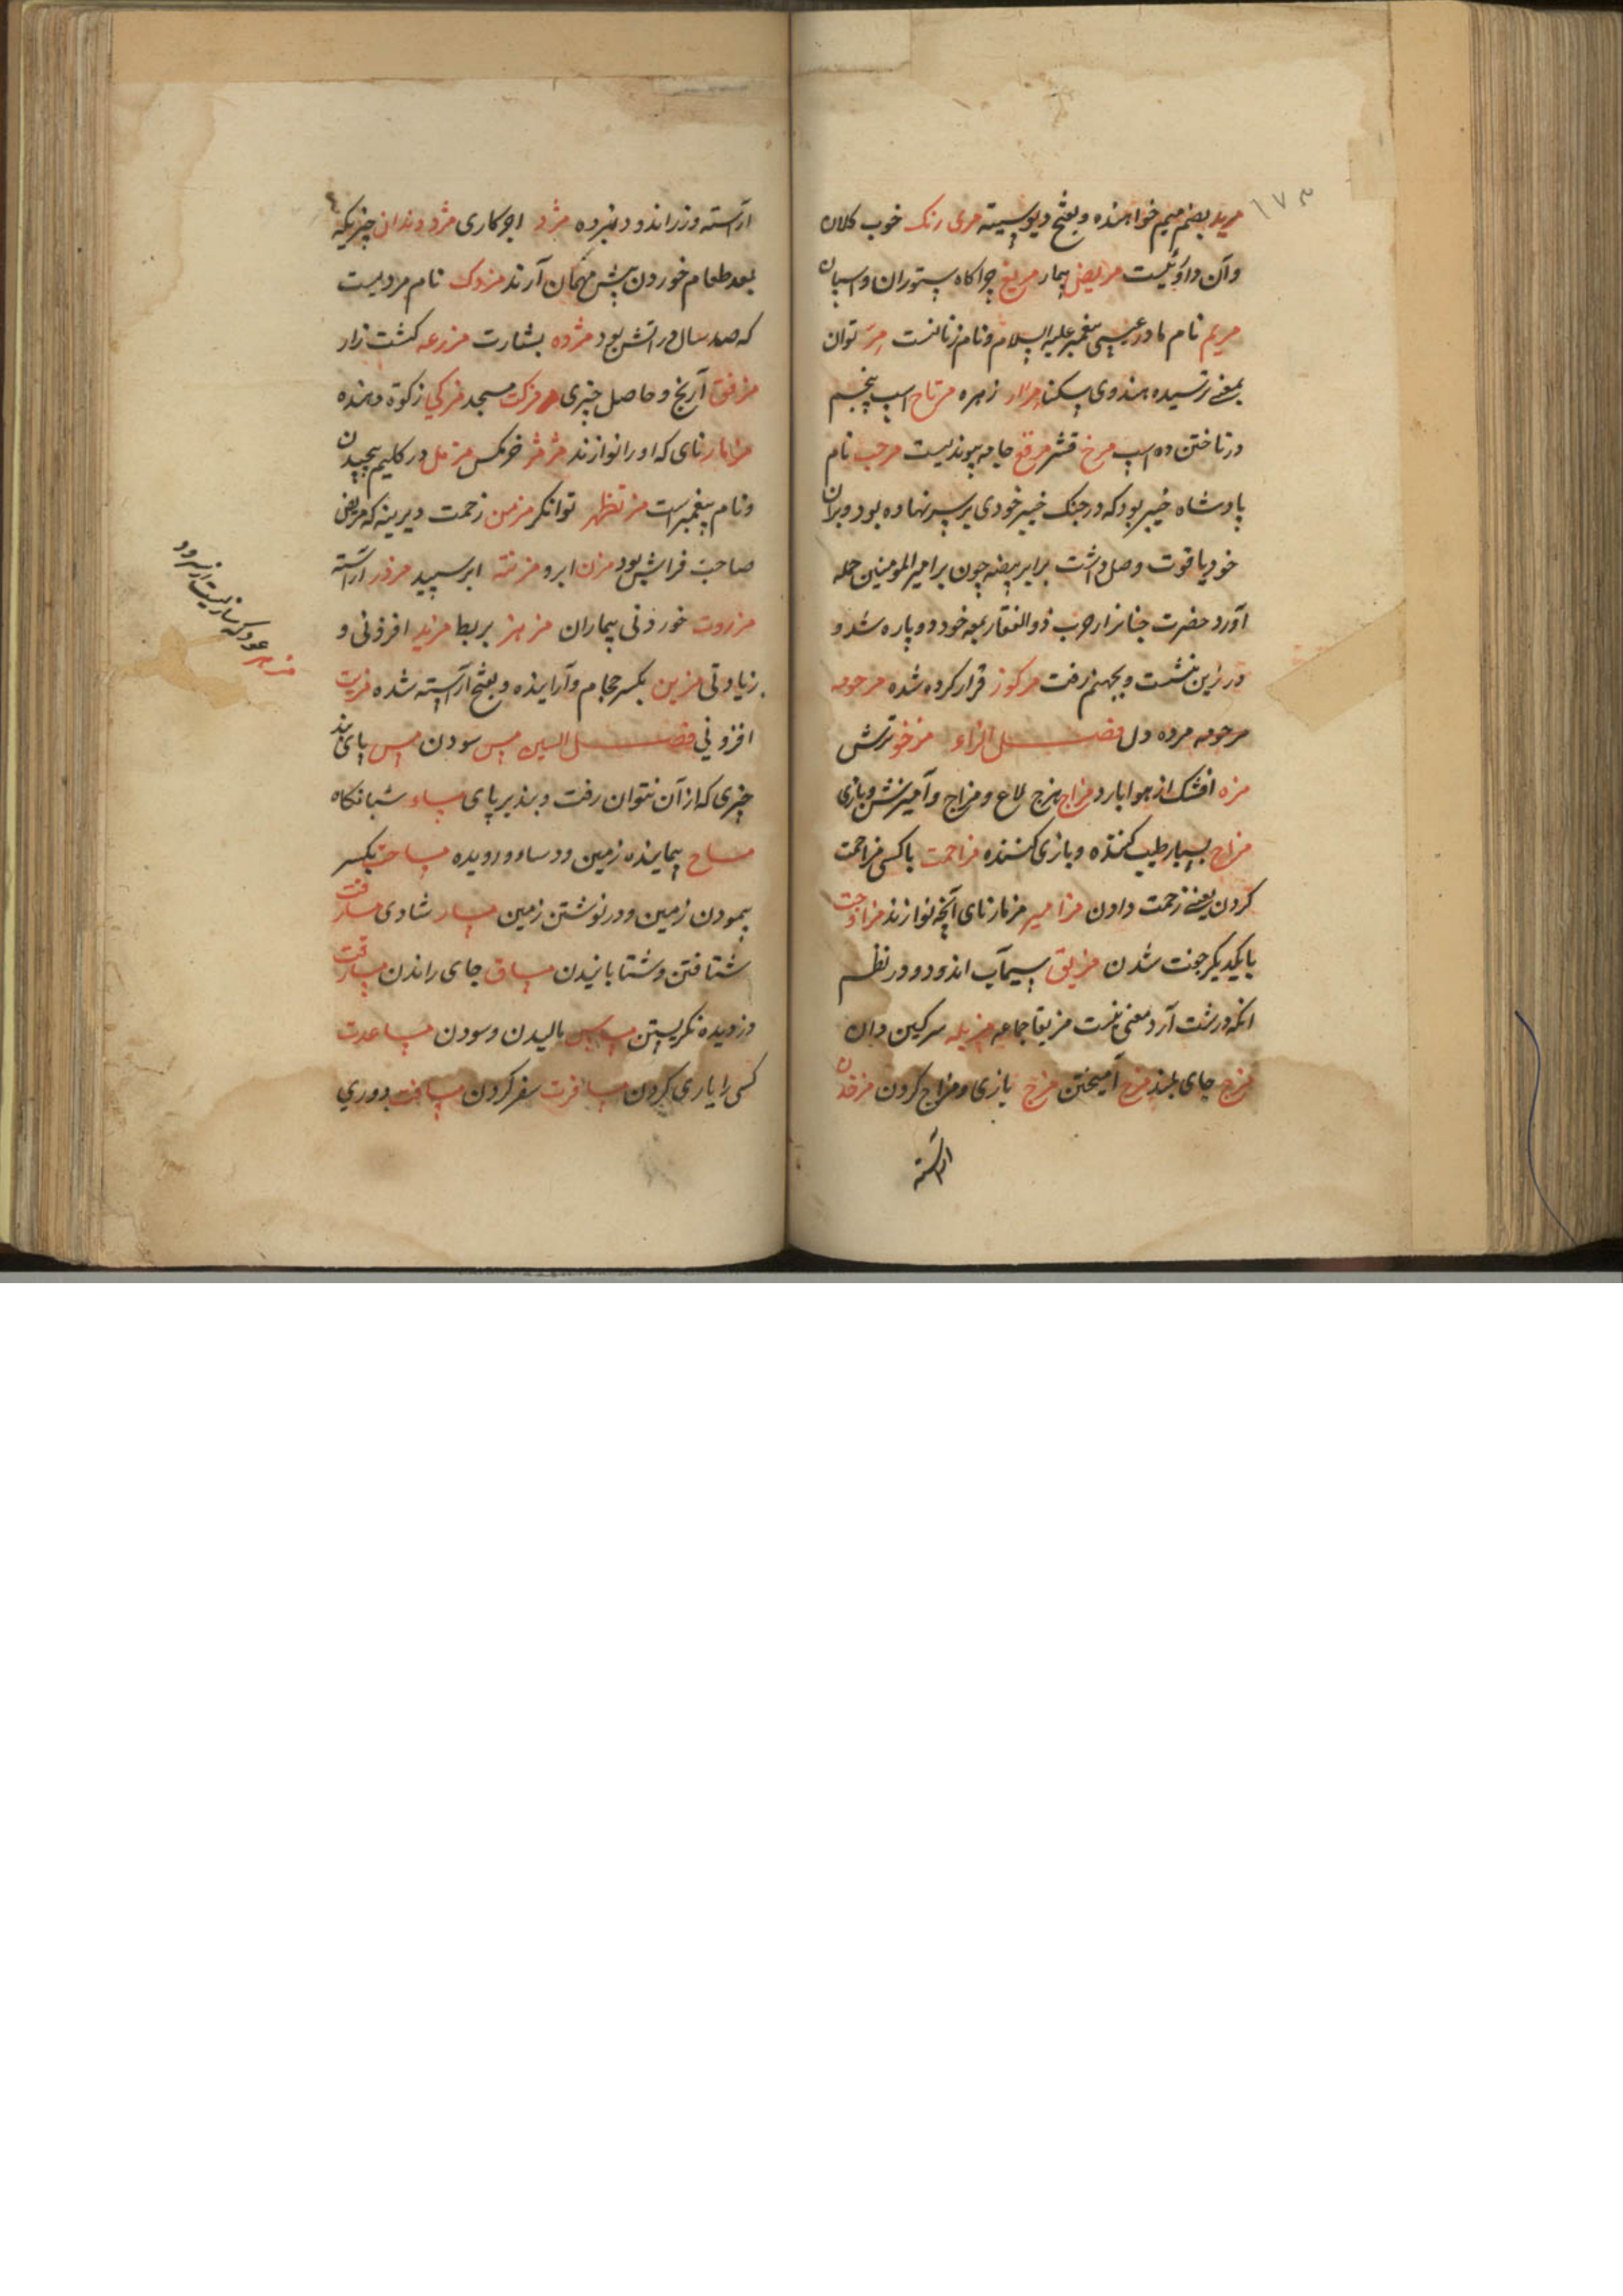 ۱۷۳
مرید بضم میم خواهنده و بفتح دیو ستیه مری رنک خوب کلان
و آن داروئیست مریض بیمار مریغ چراکاه ستوران و اسپان
مریم نام مادر عیسی پیغمبر علیه السلام و نام زنانست مرّ توان
بمعنے ترسیده هندوی مرار زهره مرتاح اسپ پنجم
در تاختن ده اسپ مرخ قشر مرقع جامه پیوندیست مرحب نام
پادشاه خیبر بود که در جنک خیبر خودی بر سر نهاده بود و بران
خود یاقوت وصل داشت برابر بیضه چون بر امیر المومنین حمله
آورد حضرت چنانزار ضرب ذو الفقار بمعه خود دو پاره شد و
در زین نشست و بجهنم رفت مرکوز قرار کرده شده مرحومه
مرحومه مرده دل فصل الزاء مزخو ترش
مزه افشک از هوا بارد مزاج هزج لاغ و مزاح و آمیزش و بازی
مزاح بسیار طیب کننده و بازی کننده مزاحمت با کسی مزاحمت
کردن یعنے زحمت دادن مزامیر مزمار نای آنچه نوازند مزاوجت
با یکدیکر جفت شدن مزیق سیماب اندود و در نظم
انکه درشت آرد معنی نیست مزیقا جماعه مزبله سرکین دان
مزج جای بلند مزج آمیختن مزح بازی و مزاح کردن مزخدن
آراسته
آراسته و زر اندود و نبرده مزد اجر کاری مزد دندان چیزیکه
بعد طعام خوردن پیش مهمان آرند مزدک نام مردیست
که صد سال در آتش بود مژده بشارت مزرعه کشت زار
مزفق آرنج و حاصل چیزی مزکت مسجد مزکی زکوة دهنده
مزمار نای که او را نوازند مزمز خرمکس مزمل در کلیم پیچیدن
و نام پیغمبر است مزتظهر توانکر مزمن زحمت دیرینه که مریض
صاحب فراش بود مزن ابر و مزنته ابر سپید مزور آراسته
مزروت خوردنی بیماران مزهز بربط مزید افزونی و
زیادتی مزین بکسر حجام و آراینده و بفتح آراسته شده مزیت
افزونی فصل السین مس سودن مس پای بند
چیزی که از آن نتوان رفت و بند بر پای مساء شبانکاه
مساح پیماینده زمین و دساور و دیده مساحت بکسر
پیمودن زمین و در نوشتن زمین مسار شادی مسارفت
شتافتن و شتابانیدن مساق جای راندن مسارقت
دزدیده نکریستن مساس مالیدن و سودن مساعدت
کسی را یاری کردن مسافرت سفر کردن مسافت دوری
مزهر عود که سازیست از سرود